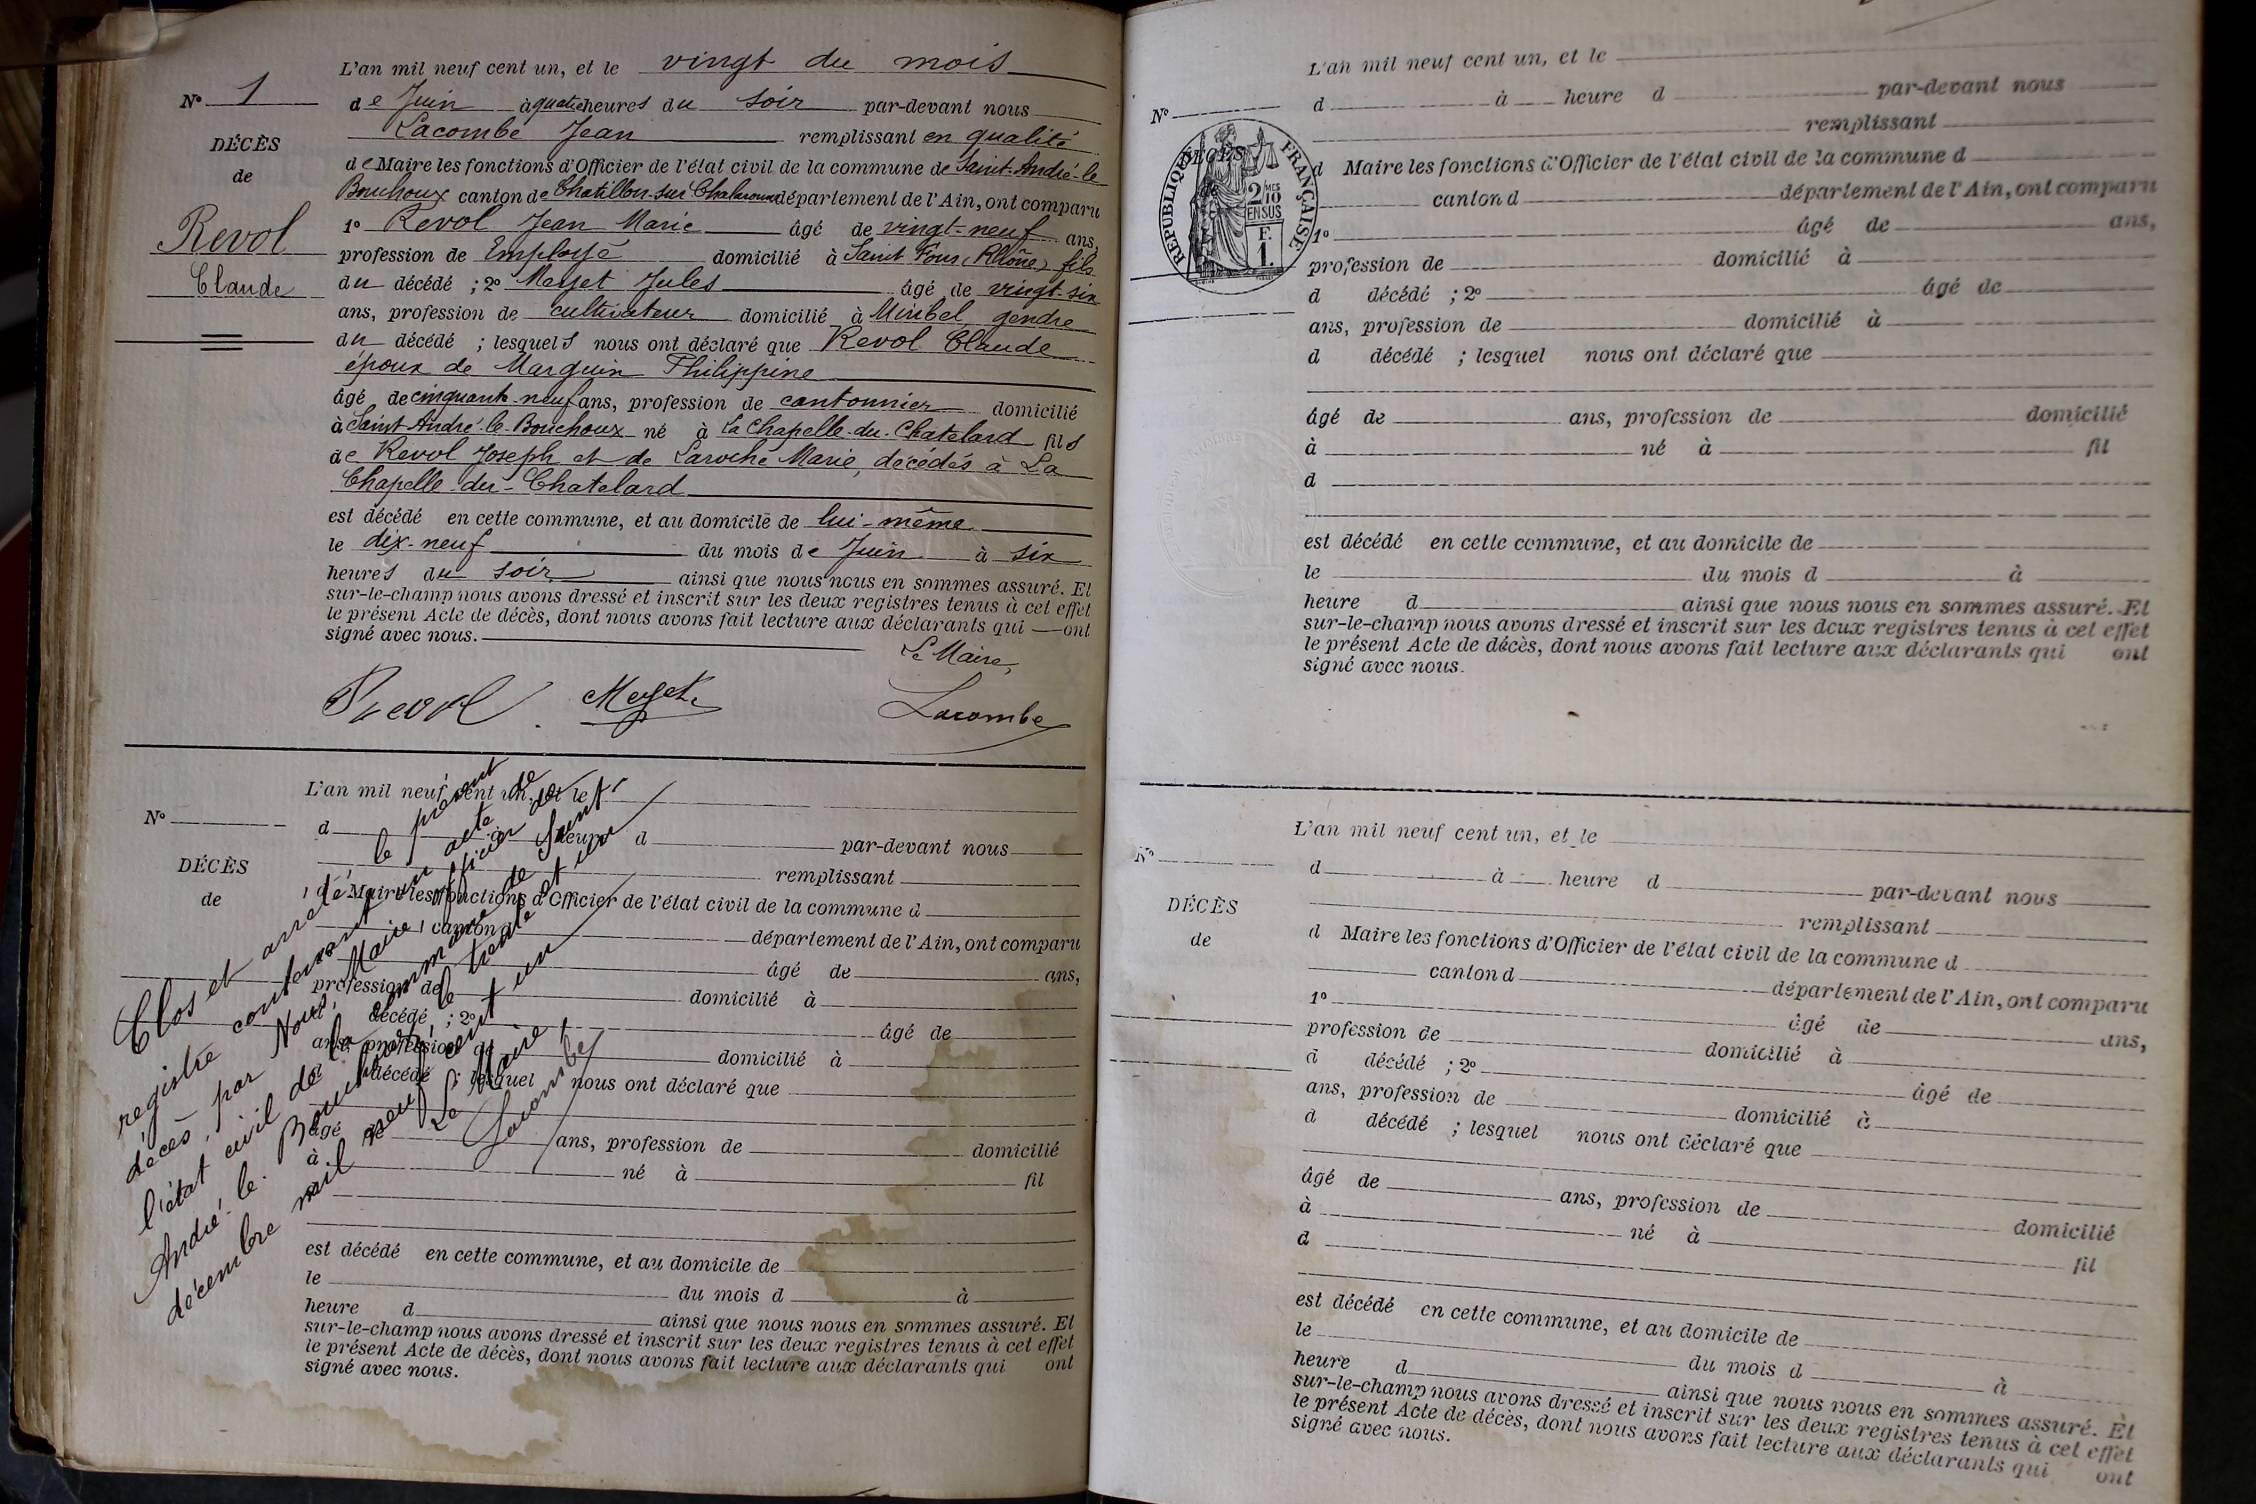 L'an mil neuf cent un, et le vingt du mois
N° 1
de Juin à quatre heures du soir par-devant nous
Lacombe Jean remplissant en qualité
DÉCÈS
de
Revol
Claude
de Maire les fonctions d'Officier de l'état civil de la commune de Saint-André-le
Bouchoux canton de Chatillon-sur-Chalaronne département de l'Ain, ont comparu
1° Revol Jean Marie âgé de vingt-neuf ans,
profession de Employé domicilié à Saint Fons (Rhône) fils
du décédé ; 2° Jules âgé de vingt-six
ans, profession de cultivateur domicilié à Miribel, gendre
du décédé ; lesquels nous ont déclaré que Revol Claude
époux de Marguin Philippine
âgé de cinquante-neuf ans, profession de cantonnier domicilié
à Saint André-le-Bouchoux né à La Chapelle-du-Chatelard fils
de Revol Joseph et de Laroche Marie, décédés à La
Chapelle-du-Chatelard
est décédé en cette commune, et au domicile de lui-même
le dix-neuf du mois de Juin à six
heures du soir ainsi que nous nous en sommes assuré. Et
sur-le-champ nous avons dressé et inscrit sur les deux registres tenus à cet effet
le présent Acte de décès, dont nous avons fait lecture aux déclarants qui ont
signé avec nous.
Le Maire,
Revol
Lacombe
L'an mil neuf cent un, et le
N°
d à heure d par-devant nous
remplissant
DÉCÈS
de
d Maire les fonctions d'Officier de l'état civil de la commune d
canton d département de l'Ain, ont comparu
âgé de ans,
profession de domicilié à
décédé ; 2° âgé de
ans, profession de domicilié à
d décédé ; lesquel nous ont déclaré que
âgé de ans, profession de domicilié
à né à fil
est décédé en cette commune, et au domicile de
le du mois d à
heure d ainsi que nous nous en sommes assuré. Et
sur-le-champ nous avons dressé et inscrit sur les deux registres tenus à cet effet
le présent Acte de décès, dont nous avons fait lecture aux déclarants qui ont
signé avec nous.
Clos et arrêté le présent
registre contenant un acte de
décès, par Nous, Maire, officier de
l'état civil de la commune de Saint
André-le-Bouchoux, le trente et un
décembre mil neuf cent un
Le Maire,
Lacombe
L'an mil neuf cent un, et le
N°
d à heure d par-devant nous
remplissant
DÉCÈS
RÉPUBLIQUE FRANÇAISE
2/10 MES
EN SUS
F.
1.
d Maire les fonctions d'Officier de l'état civil de la commune d
canton d département de l'Ain, ont comparu
1° âgé de ans,
profession de domicilié à
d décédé ; 2° âgé de
ans, profession de domicilié à
d décédé ; lesquel nous ont déclaré que
âgé de ans, profession de domicilié
à né à fil
d
est décédé en cette commune, et au domicile de
le du mois d à
heure d ainsi que nous nous en sommes assuré. Et
sur-le-champ nous avons dressé et inscrit sur les deux registres tenus à cet effet
le présent Acte de décès, dont nous avons fait lecture aux déclarants qui ont
signé avec nous.
L'an mil neuf cent un, et le
N°
d à heure d par-devant nous
remplissant
DÉCÈS
de
d Maire les fonctions d'Officier de l'état civil de la commune d
canton d département de l'Ain, ont comparu
1° âgé de ans,
profession de domicilié à
d décédé ; 2° âgé de
ans, profession de domicilié à
d décédé ; lesquel nous ont déclaré que
âgé de ans, profession de domicilié
à né à fil
d
est décédé en cette commune, et au domicile de
le du mois d à
heure d ainsi que nous nous en sommes assuré. Et
sur-le-champ nous avons dressé et inscrit sur les deux registres tenus à cet effet
le présent Acte de décès, dont nous avons fait lecture aux déclarants qui ont
signé avec nous.